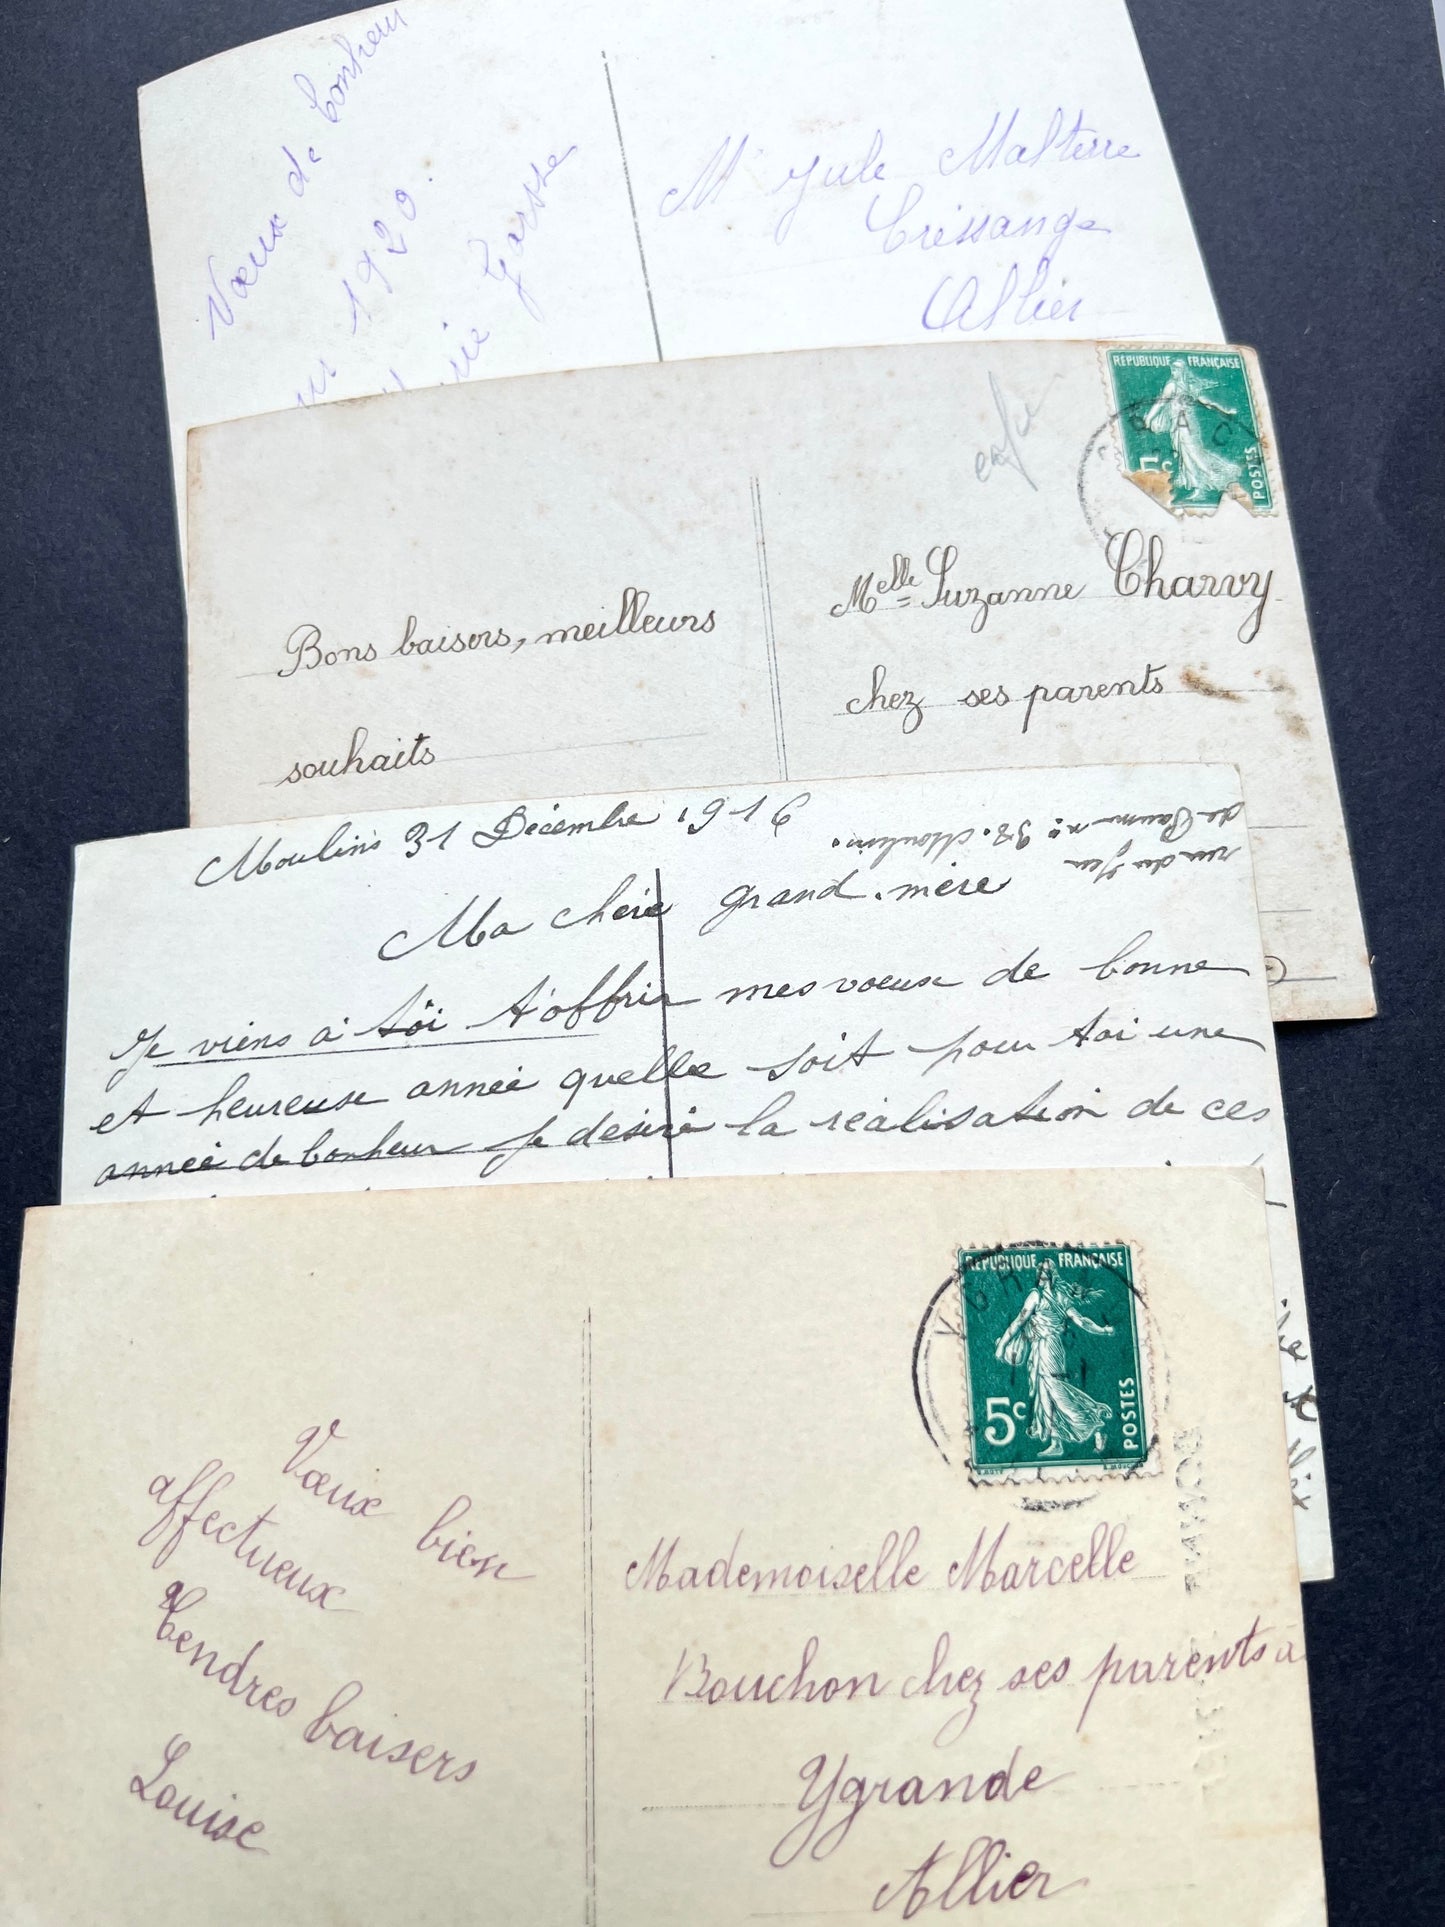 Vœux de bonheur
1920.
M Jule Malterre
Cressange
Allier
RÉPUBLIQUE FRANÇAISE
POSTES
Bons baisers, meilleurs
souhaits
Melle Suzanne Charvy
chez ses parents
Moulins 31 Décembre 1916
rue du
de Paume no 32. Moulins.
Ma chère grand.mère
Je viens à toi t'offrir mes voeux de bonne
et heureuse année quelle soit pour toi une
année de bonheur Je désire la réalisation de ces
RÉPUBLIQUE FRANÇAISE
5c
POSTES
YGRANDE
Vœux bien
affectueux
Tendres baisers
Louise
Mademoiselle Marcelle
Bouchon chez ses parents à
Ygrande
Allier